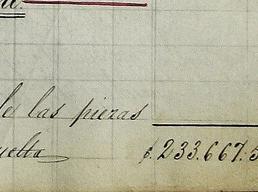 de las piezas
vuelta $ 233.667.5